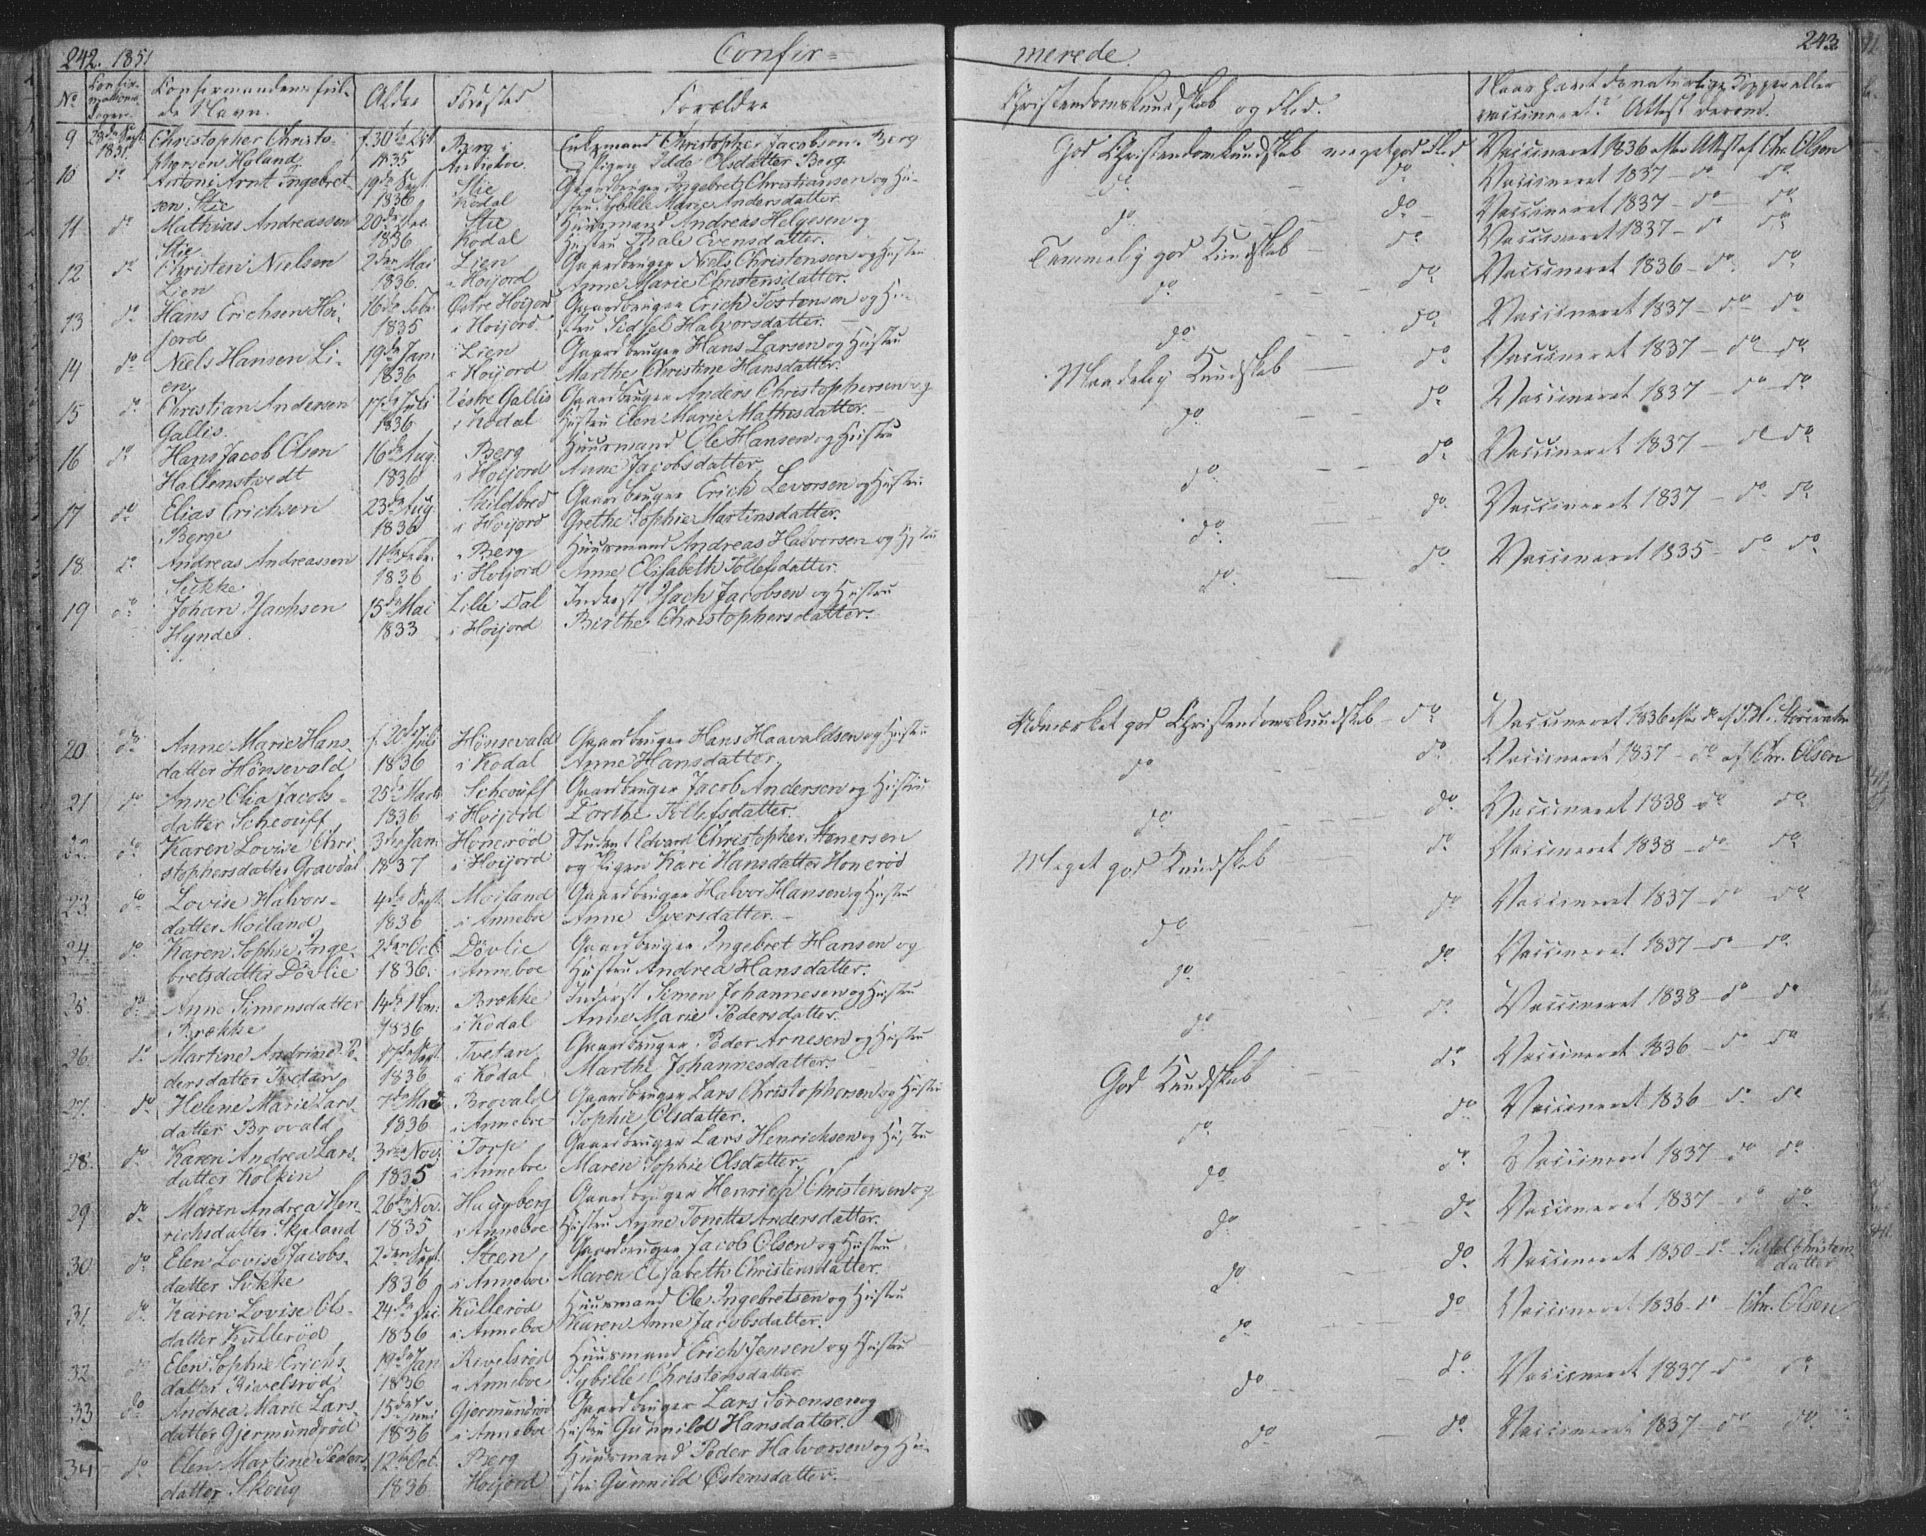 242. 1851
Confir-
No Confirmations Dagen Confirmandens fulde Navn. Alder Fødested Forældre
9 28de Sept. 1851. Christopher Christo- f. 30te Berg i Enkemand Christopher Jacobsen Berg
phersen Høland 1835 Andeboe. og Pigen Ilde Olsdatter Berg
10 do Antoni Arnt Ingebret- 19de Sept. Stie Gaardbruger Ingebret Christiansen og Hu-
sen Stie 1836 Kodal stru Sybille Marie Andersdatter
11 do Mathias Andreassen 20de Stie Huusmand Andreas Helgesen og
Stie 1836 Kodal Hustru Thale Evensdatter.
12 do Christen Nielsen 2den Mai Lien Gaardbruger Niels Christensen og Hustru
Lien 1836 i Høijord Anne Marie Christensdatter.
13 do Hans Erichsen Høi- 16de Febr Østre Høijord Gaardbruger Erich Torstenson og Hu-
jord 1835 i Høijord. stru Sidsel Halvorsdatter.
14 do Niels Hansen Li- 19de Jan. Lien Gaardbruger Hans Larsen og Hustru
en 1836 i Høijord Marthe Christine Hansdatter.
15 do Christian Andersen 17de Juli Vestre Gallis Gaardbruger Anders Christophersen og
Gallis. 1836 i Kodal Hustru Elen Marie Mathisdatter.
16 do Hans Jacob Olsen 16de Aug. Berg Huusmand Ole Hansen og Hustru
Hallenstvedt 1836 i Høijord Anne Jacobsdatter
17 do Elias Erichsen 23de Aug. Skildbred Gaardbruger Erich Levorsen og Hustru
Berge 1836 i Høijord Grethe Sophie Martinsdatter.
18. do Andreas Andreassen 11te Febr. Berg Huusmand Andreas Halvorsen og Hustru
Sukke 1836 i Høijord Anne Elisabeth Tollefsdatter.
19 do Johan Isachsen 15de Mai Lille Dal Inderst Isach Jacobsen og Hustru
Hynde. 1833 i Høijord Birthe Christophersdatter.
20. do Anne Marie Hans- f. 20de Juli Hønsevald Gaardbruger Hans Haavaldsen og Hustru
datter Hønsevald 1836 i Kodal Anne Hansdatter
21 do Anne Elia Jacobs- 25de Marts Scheouff Gaardbruger Jacob Andersen og Hustru
datter Scheouff 1836 i Høijord Dorthe Tollefsdatter.
22. do Karen Lovise Chri- 3die Jan. Honerød Student Edvard Christopher Stenersen
stophersdatter Gravdal 1837 i Høijord og Pigen Kari Hansdatter Honerød
23. do Lovise Halvors- 4de Sept. Møiland Gaardbruger Halvor Hansen og Hustru
datter Møiland 1836 i Anneboe Anne Iversdatter.
24. do Karen Sophie Inge- 2den Oct. Døvlie Gaardbruger Ingebret Hansen og
bretsdatter Døvlie 1836. i Anneboe Hustru Andrea Hansdatter.
25. do Anne Simonsdatter 14de Brække Inderst Simen Johannesen og Hustru
Brække 1836 i Kodal Anne Marie Pedersdatter.
26. do Martine Andrine Pe- 17de Sept. Tvetan Gaardbruger Peder Arnesen og Hustru
dersdatter Tvetan 1836 i Kodal Marthe Johannesdatter.
27. do Helene Marie Lars- 7de Mai Brovald Gaardbruger Lars Christophersen og Hustru
datter Brovald 1836 i Anneboe Sophie Olsdatter.
28. do Karen Andrea Lars- 3die Nov. Torp Gaardbruger Lars Henrichsen og Hustru
datter Kolkin 1835 i Anneboe Maren Sophie Olsdatter
29 do Maren Andrea Hen- 26de Nov. Haugberg Gaardbruger Henrich Christensen og
richsdatter Skjeland 1835 i Anneboe Hustru Anne Tonette Andersdatter.
30 do Elen Lovise Jacobs- 2den Sept. Steen Gaardbruger Jacob Olsen og Hustru
datter Sukke 1836 i Anneboe Maren Elisabeth Christensdatter.
31. do Karen Lovise Ols- 24de Kullerød Huusmand Ole Ingebretsen og Hustru
datter Kullerød 1836 i Anneboe Karen Anne Jacobsdatter.
32 do Elen Sophie Erichs- 19de Jan Rivelsrød Huusmand Erich Jensen og Hustru
datter Rivelsrød 1836 i Anneboe Sybille Christensdatter
33 do Andrea Marie Lars- 15de Juni Gjermundrød Gaardbruger Lars Sørensen og
datter Gjermundrød 1836 i Anneboe Hustru Gunnild Hansdatter.
34 do Elen Martine Peders- 12te Oct. Berg Huusmand Peder Halvorsen og Hu-
datter Skoug 1836 Høijord stru Gunnild Østensdatter.
merede. 243
Christendomskundskab og Flid. Naar havt de naturlige Kopper eller
vaccineret? Attest derom.
God Christendomskundskab meget god Flid Vaccineret 1836 efter Attest af Chr. Olsen
do do Vaccineret 1837 - do do
do do Vaccineret 1837 - do do
Temmelig god Kundskab do Vaccineret 1837 - do do
do do Vaccineret 1836 - do do
do do Vaccineret 1837 - do do
Maadelig Kundskab do Vaccineret 1837 - do do
do do Vaccineret 1837 - do do
do do Vaccineret 1837 - do do
do do Vaccineret 1837 - do do
do do Vaccineret 1835 - do do
Udmærket god Christendomskundskab - do Vaccineret 1836 efter do af
do do Vaccineret 1837 - do af Chr. Olsen
do do Vaccineret 1838 do do
Meget god Kundskab do Vaccineret 1838 - do do
do do Vaccineret 1837 - do do
do do Vaccineret 1837 - do do
do do Vaccineret 1838 - do do
God Kundskab do Vaccineret 1836 - do do
do do Vaccineret 1836 - do do
do do Vaccineret 1837 - do do
do do Vaccineret 1837 - do do
do do Vaccineret 1850 - do Sidsel Christens-
datter
do do Vaccineret 1836 - do - Chr. Olsen
do do Vaccineret 1837 - do do
do do Vaccineret 1837 - do do